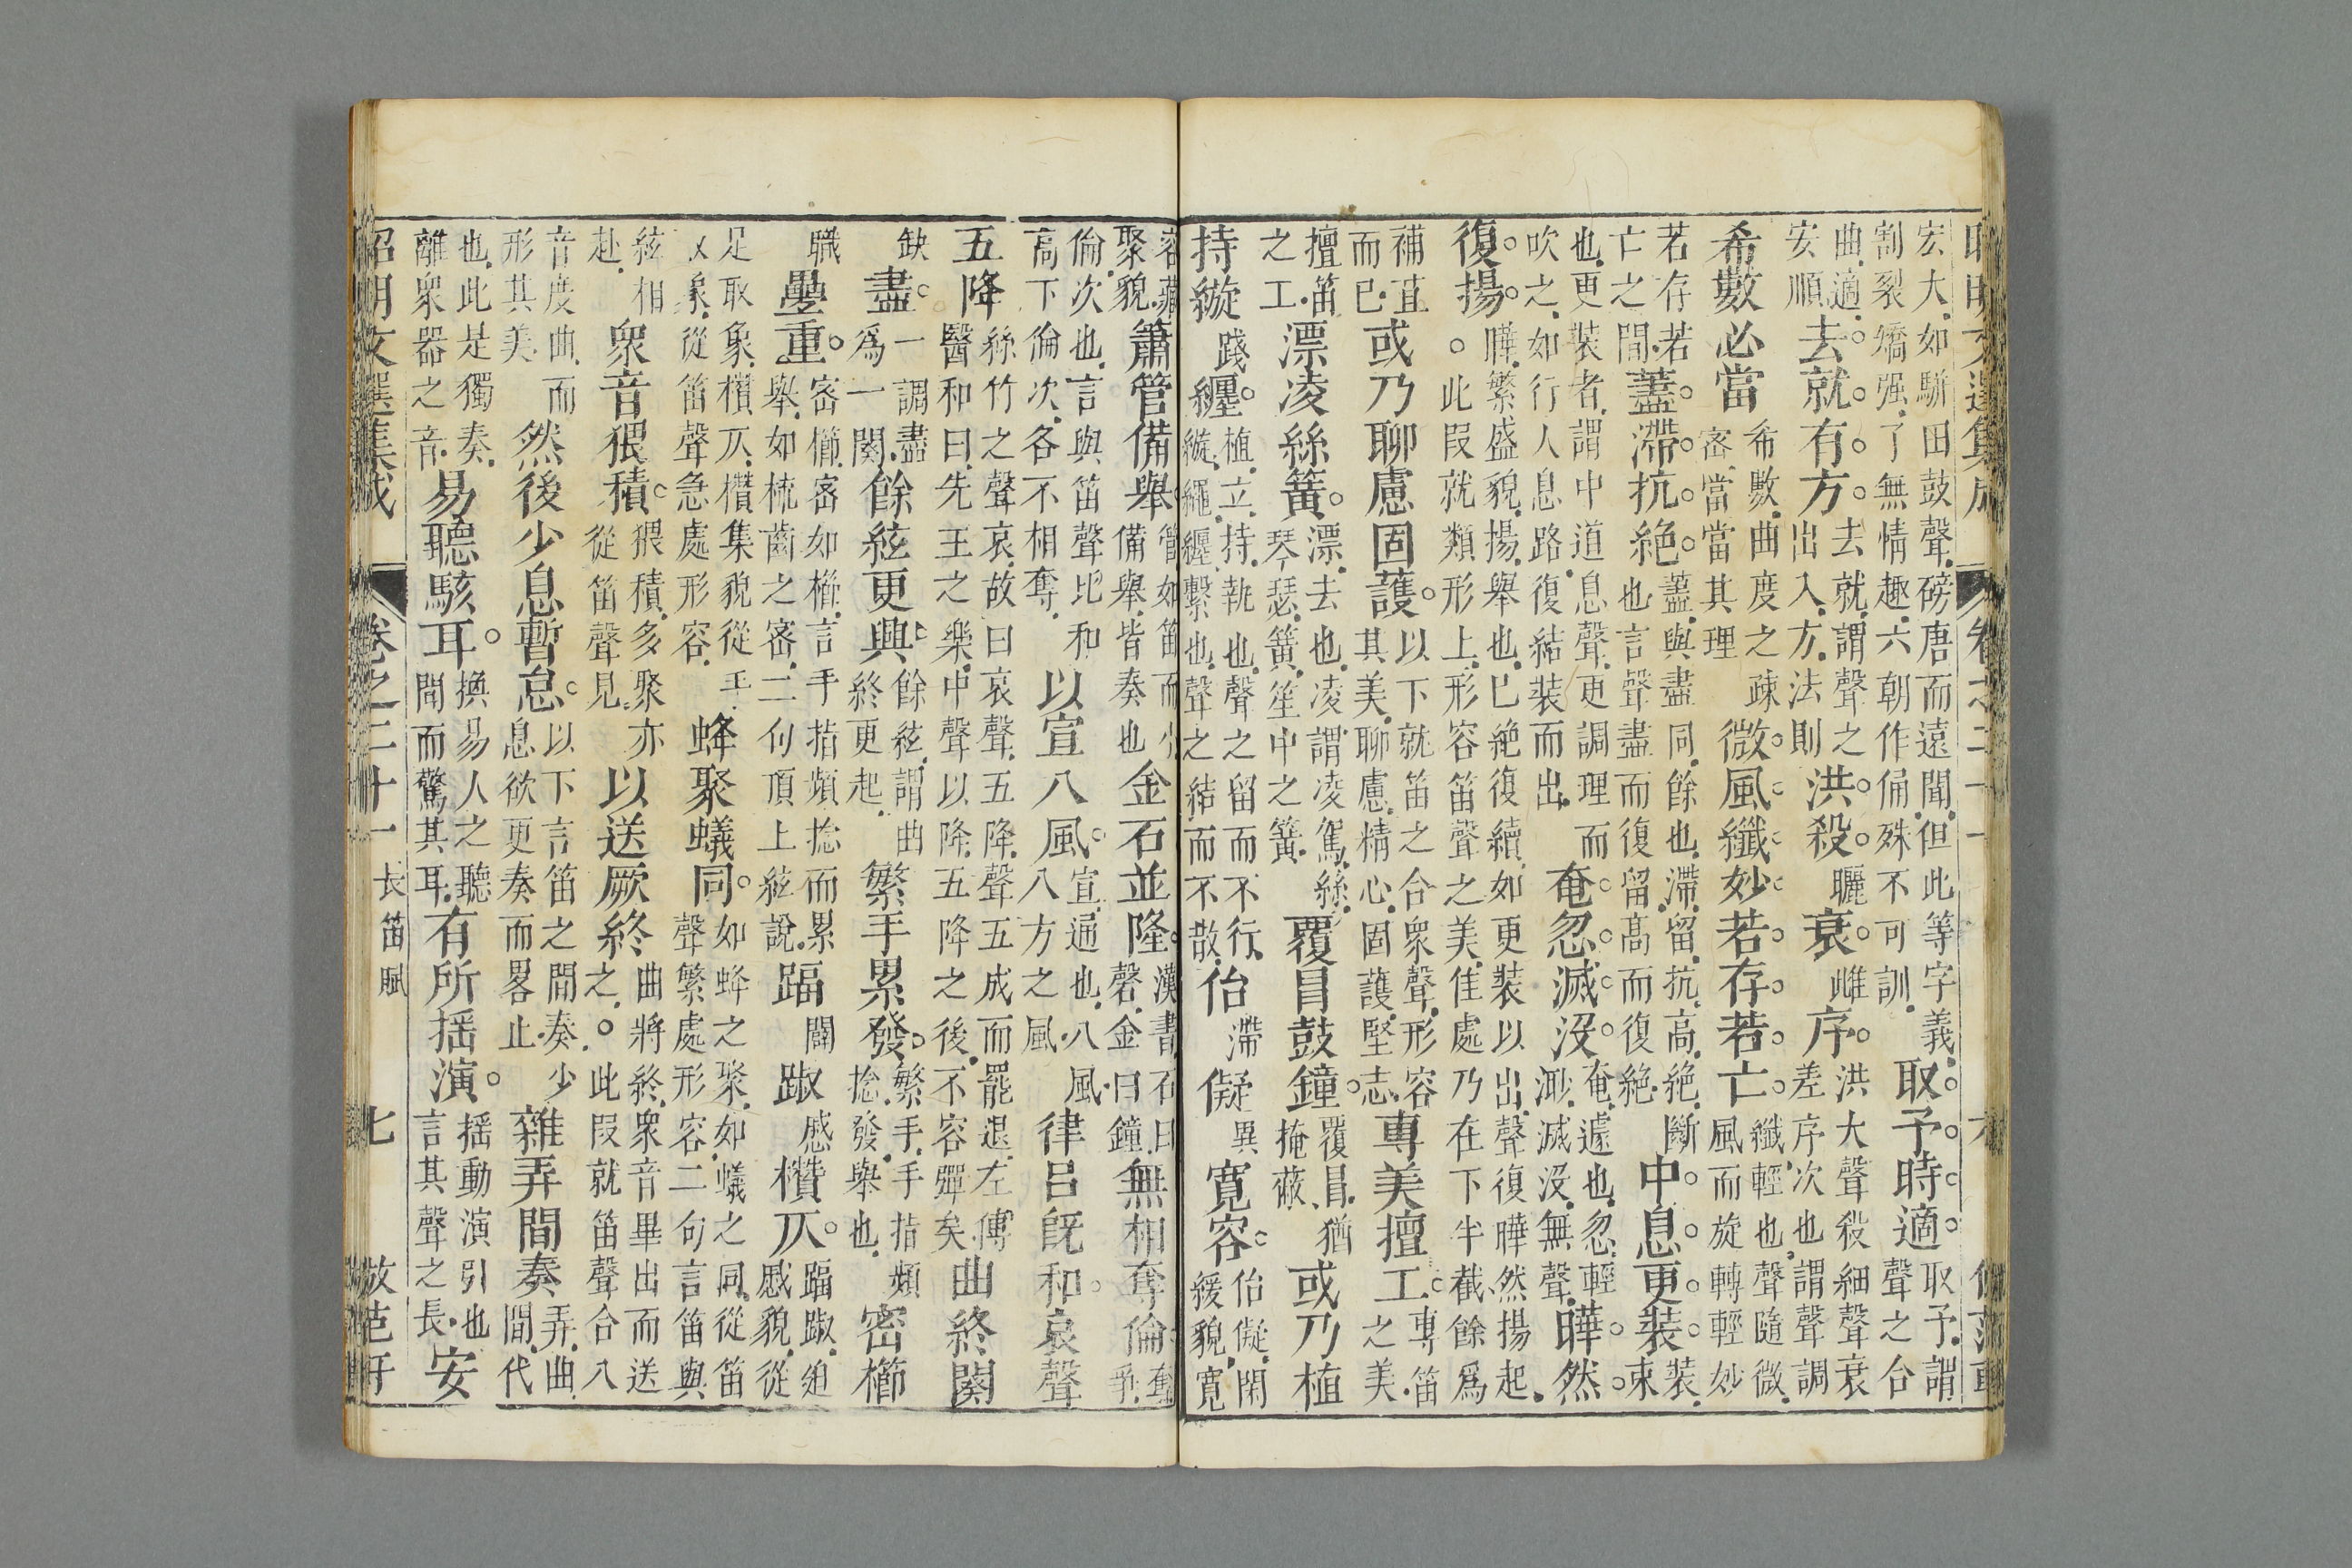 宏大如駢田鼓聲磅唐而遠聞但此等字義割裂矯强了無情趣六朝作俑殊不可訓取予時適取予謂聲之合
曲適安順去就有方去就謂聲之出入方法則洪殺曬衰雌序洪大聲殺細聲衰差序次也謂聲調
希數必當希數曲度之疎密當當其理微風纖妙若存若亡纖輕也聲隨微風而旋轉輕妙
若存若亡之間藎滯抗絕藎與盡同餘也滯留抗高絕斷也言聲盡而復留高而復絕中息更裝裝束
也更裝者謂中道息聲更調理而吹之如行人息路復結裝而出奄忽滅没奄遽也忽輕渺滅没無聲曄然
復揚曄繁盛貌揚舉也已絕復續如更裝以出聲復曄然揚起○此段就類形上形容笛聲之美佳處乃在下半截餘爲
補直而已或乃聊慮固護以下就笛之合衆聲形容其美聊慮精心固護堅志專美擅工專笛之美
擅笛之工漂凌絲簧漂去也凌謂凌駕絲琴瑟簧笙中之簧覆冒鼓鐘覆冒猶掩蔽或乃植
持縼踐纏植立持執也聲之留而不行縼繩纏繫也聲之結而不散佁滯儗異寬容佁儗閑緩貌寬
容藏聚貌簫管備舉管如笛而小備舉皆奏也金石並隆漢書石曰磬金曰鐘無相奪倫奪爭
倫次也言與笛聲比和高下倫次各不相奪以宣八風宣通也八風八方之風律呂旣和哀聲
五降絲竹之聲哀故曰哀聲五降聲五成而罷退左傳醫和曰先王之樂中聲以降五降之後不容彈矣曲終闋
缺盡一調盡爲一闋餘絃更興餘絃謂曲終更起繁手累發繁手手指頻捻發舉也密櫛
職疊重密櫛密如櫛言手指頻捻而累舉如梳齒之密二句頂上絃說踾闢踧慼欑仄踾踧迫慼貌從
足取象欑仄欑集貌從象從笛聲急處形容蜂聚蟻同如蜂之聚如蟻之同從笛聲繁處形容二句言笛與
絃相赴衆音猥積猥積多聚亦從笛聲見以送厥終曲將終衆音畢出而送之○此段就笛聲合八
音度曲而形其美然後少息暫怠以下言笛之間奏少息欲更奏而畧止雜弄間奏弄曲間代
也此是獨奏離衆器之音易聽駭耳換易人之聽聞而驚其耳有所搖演搖動演引也言其聲之長安
昭明文選集成 卷之二十一 長笛賦 七